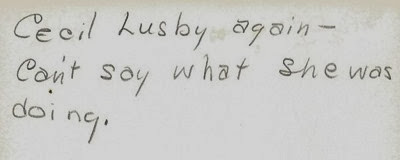 Cecil Lusby again –
Can't say what she was
doing.